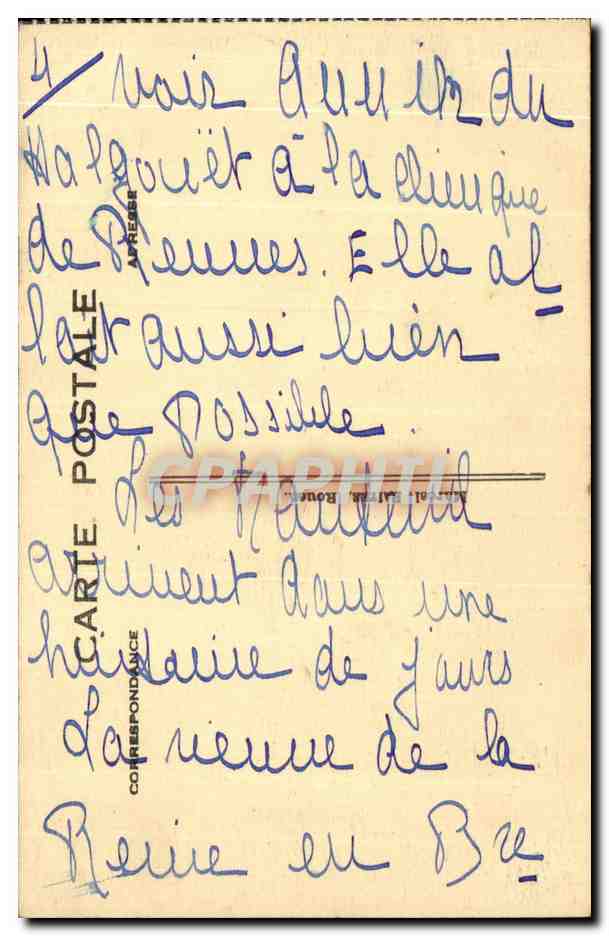 4/ voir Annick du
Halgouët à la clinique
de Rennes. Elle al
lait aussi bien
que possible.
Les Nanteuil
arrivent dans une
huitaine de jours
La venue de la
Reine en Bre
CARTE POSTALE
CORRESPONDANCE
ADRESSE
Rouen
CPAPHIL